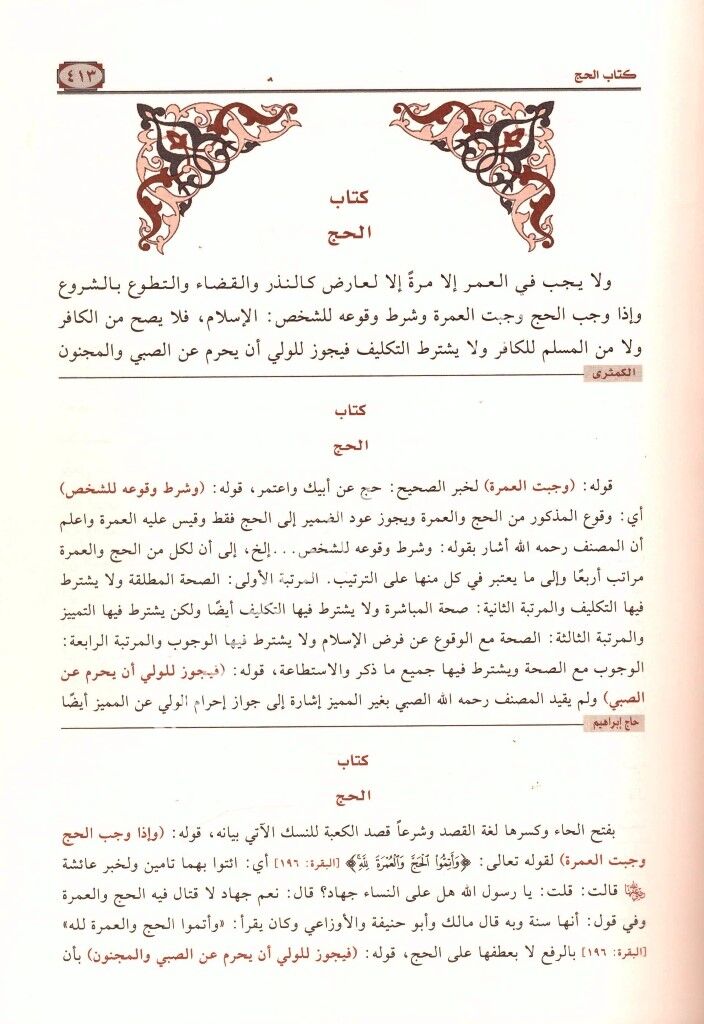 كتاب الحج
٤١٣
كتاب
الحج
ولا يجب في العمر إلا مرةً إلا لعارض كالنذر والقضاء والتطوع بالشروع
وإذا وجب الحج وجبت العمرة وشرط وقوعه للشخص: الإسلام، فلا يصح من الكافر
ولا من المسلم للكافر ولا يشترط التكليف فيجوز للولي أن يحرم عن الصبي والمجنون
الكمثرى
كتاب
الحج
قوله: (وجبت العمرة) لخبر الصحيح: حج عن أبيك واعتمر، قوله: (وشرط وقوعه للشخص)
أي: وقوع المذكور من الحج والعمرة ويجوز عود الضمير إلى الحج فقط وقيس عليه العمرة واعلم
أن المصنف رحمه الله أشار بقوله: وشرط وقوعه للشخص...إلخ، إلى أن لكل من الحج والعمرة
مراتب أربعًا وإلى ما يعتبر في كل منها على الترتيب. المرتبة الأولى: الصحة المطلقة ولا يشترط
فيها التكليف والمرتبة الثانية: صحة المباشرة ولا يشترط فيها التكليف أيضًا ولكن يشترط فيها التمييز
والمرتبة الثالثة: الصحة مع الوقوع عن فرض الإسلام ولا يشترط فيها الوجوب والمرتبة الرابعة:
الوجوب مع الصحة ويشترط فيها جميع ما ذكر والاستطاعة، قوله: (فيجوز للولي أن يحرم عن
الصبي) ولم يقيد المصنف رحمه الله الصبي بغير المميز إشارة إلى جواز إحرام الولي عن المميز أيضًا
حاج إبراهيم
كتاب
الحج
بفتح الحاء وكسرها لغة القصد وشرعاً قصد الكعبة للنسك الآتي بيانه، قوله: (وإذا وجب الحج
وجبت العمرة) لقوله تعالى: ﴿وَأَتِمُّوا۟ ٱلْحَجَّ وَٱلْعُمْرَةَ لِلَّهِ﴾ [البقرة: ١٩٦] أي: ائتوا بهما تامين ولخبر عائشة
رضي الله عنها قالت: قلت: يا رسول الله هل على النساء جهاد؟ قال: نعم جهاد لا قتال فيه الحج والعمرة
وفي قول: أنها سنة وبه قال مالك وأبو حنيفة والأوزاعي وكان يقرأ: «وأتموا الحج والعمرة لله»
[البقرة: ١٩٦] بالرفع لا بعطفها على الحج، قوله: (فيجوز للولي أن يحرم عن الصبي والمجنون) بأن